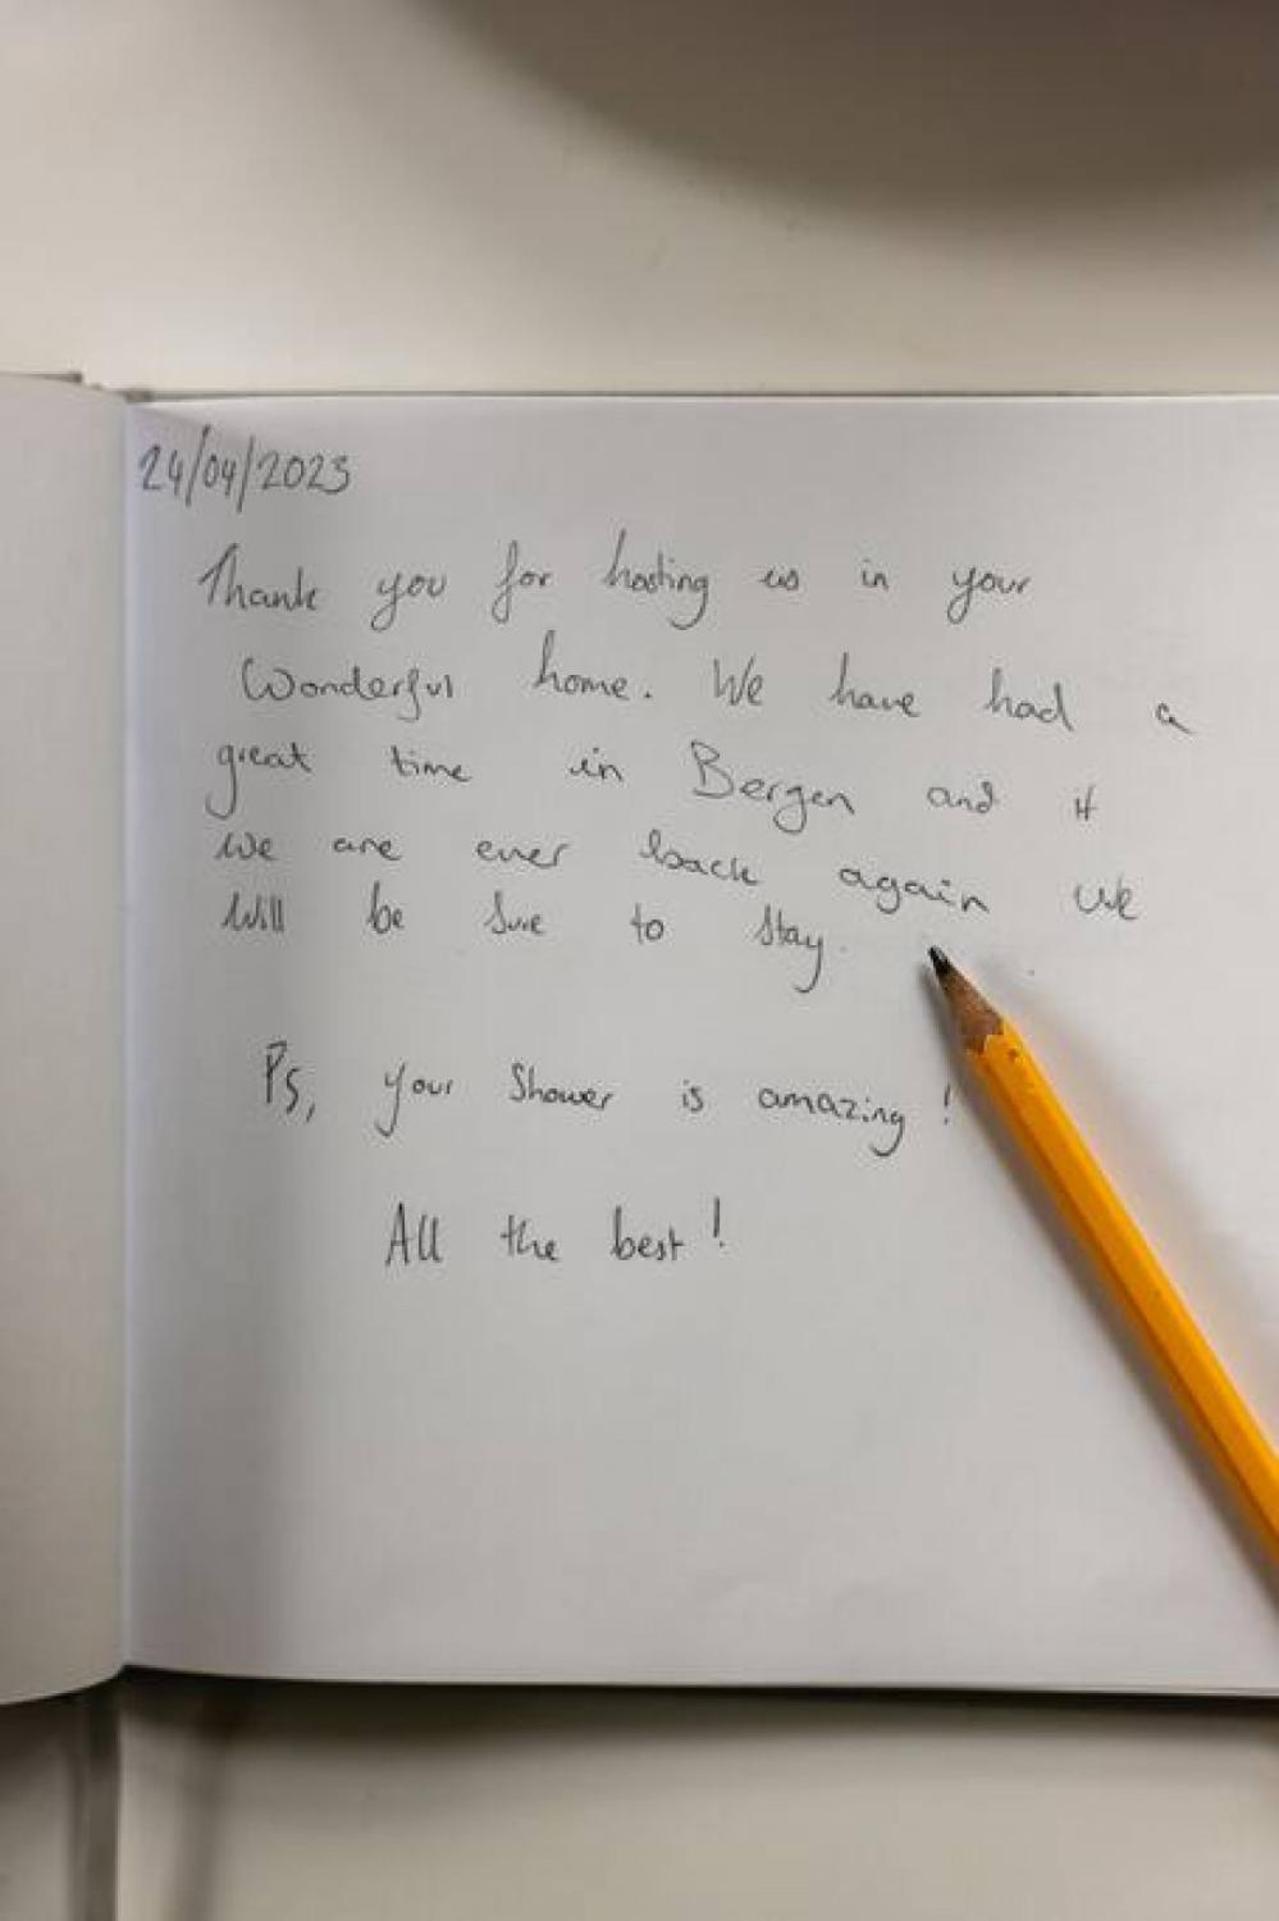 24/04/2023
Thank you for hosting us in your
Wonderful home. We have had a
great time in Bergen and if
we are ever back again we
will be sure to stay.
Ps, your Shower is amazing!
All the best!